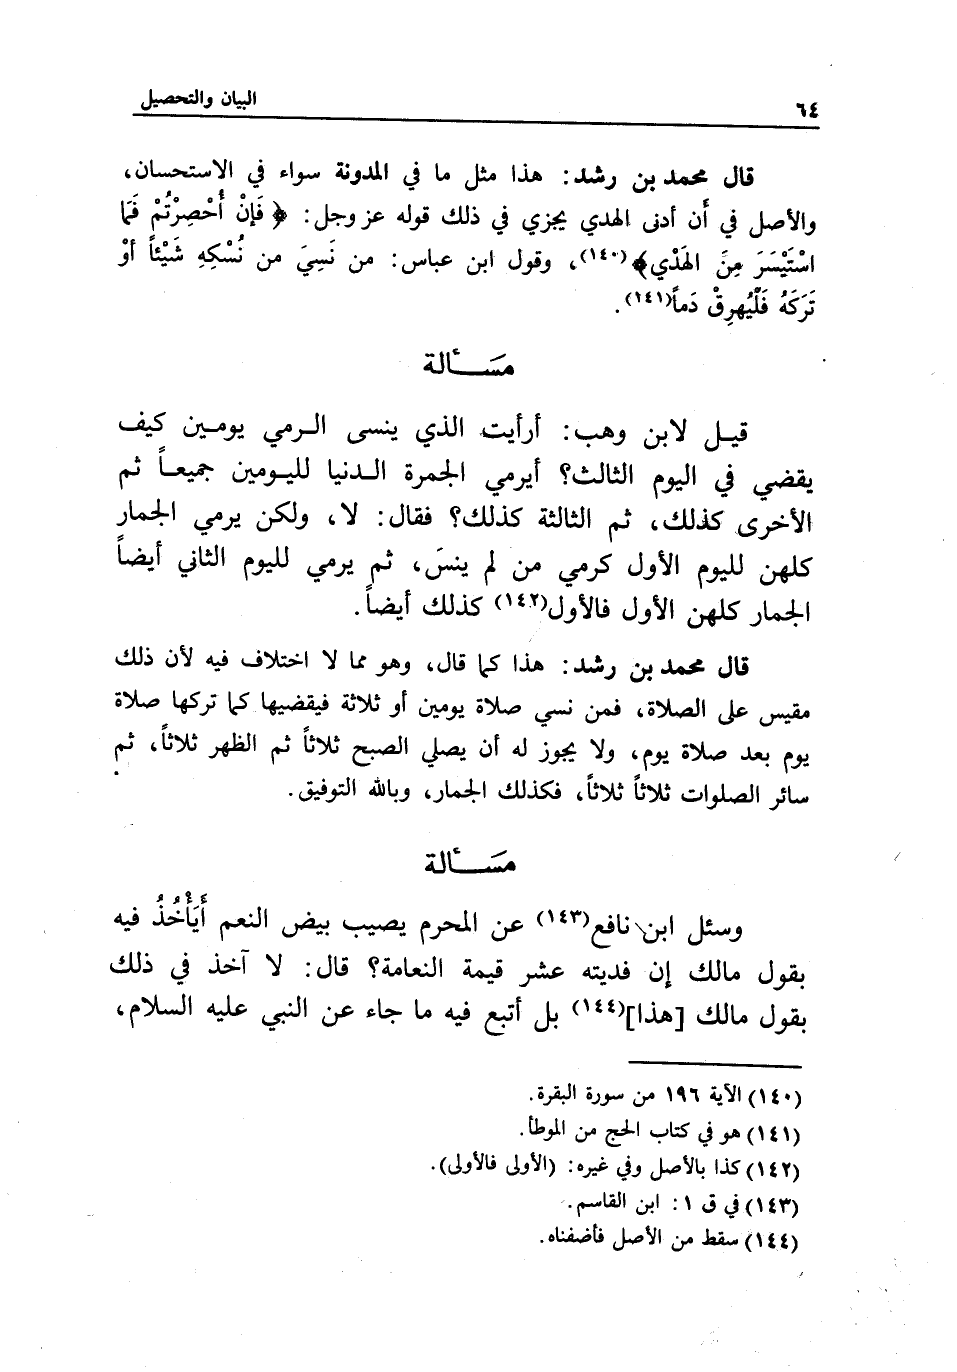 ٦٤
البيان والتحصيل
قال محمد بن رشد: هذا مثل ما في المدونة سواء في الاستحسان،
والأصل في أن أدنى الهدي يجزي في ذلك قوله عز وجل: ﴿ فَإِنْ أُحْصِرْتُمْ فَمَا
اسْتَيْسَرَ مِنَ الهَدْيِ﴾(١٤٠)، وقول ابن عباس: من نَسِيَ من نُسْكِهِ شَيْئاً أوْ
تَرَكَهُ فَلْيُهرِقْ دَماً(١٤١).
مَسَـــأَلة
قيـل لابن وهب: أرأيت الذي ينسى الـرمي يومـين كيف
يقضي في اليوم الثالث؟ أيرمي الجمرة الـدنيا لليـومين جميعـاً ثم
الأخرى كذلك، ثم الثالثة كذلك؟ فقال: لا، ولكن يرمي الجمار
كلهن لليوم الأول كرمي من لم ينسَ، ثم يرمي لليوم الثاني أيضاً
الجمار كلهن الأول فالأول(١٤٢) كذلك أيضاً.
قال محمد بن رشد: هذا كما قال، وهو مما لا اختلاف فيه لأن ذلك
مقيس على الصلاة، فمن نسي صلاة يومين أو ثلاثة فيقضيها كما تركها صلاة
يوم بعد صلاة يوم، ولا يجوز له أن يصلي الصبح ثلاثاً ثم الظهر ثلاثاً، ثم
سائر الصلوات ثلاثاً ثلاثاً، فكذلك الجمار، وبالله التوفيق.
مَسَـــأَلة
وسئل ابن نافع(١٤٣) عن المحرم يصيب بيض النعم أَيَأْخُذُ فيه
بقول مالك إن فديته عشر قيمة النعامة؟ قال: لا آخذ في ذلك
بقول مالك [هذا](١٤٤) بل أتبع فيه ما جاء عن النبي عليه السلام،
(١٤٠) الآية ١٩٦ من سورة البقرة.
(١٤١) هو في كتاب الحج من الموطأ.
(١٤٢) كذا بالأصل وفي غيره: (الأولى فالأولى).
(١٤٣) في ق ١: ابن القاسم.
(١٤٤) سقط من الأصل فأضفناه.